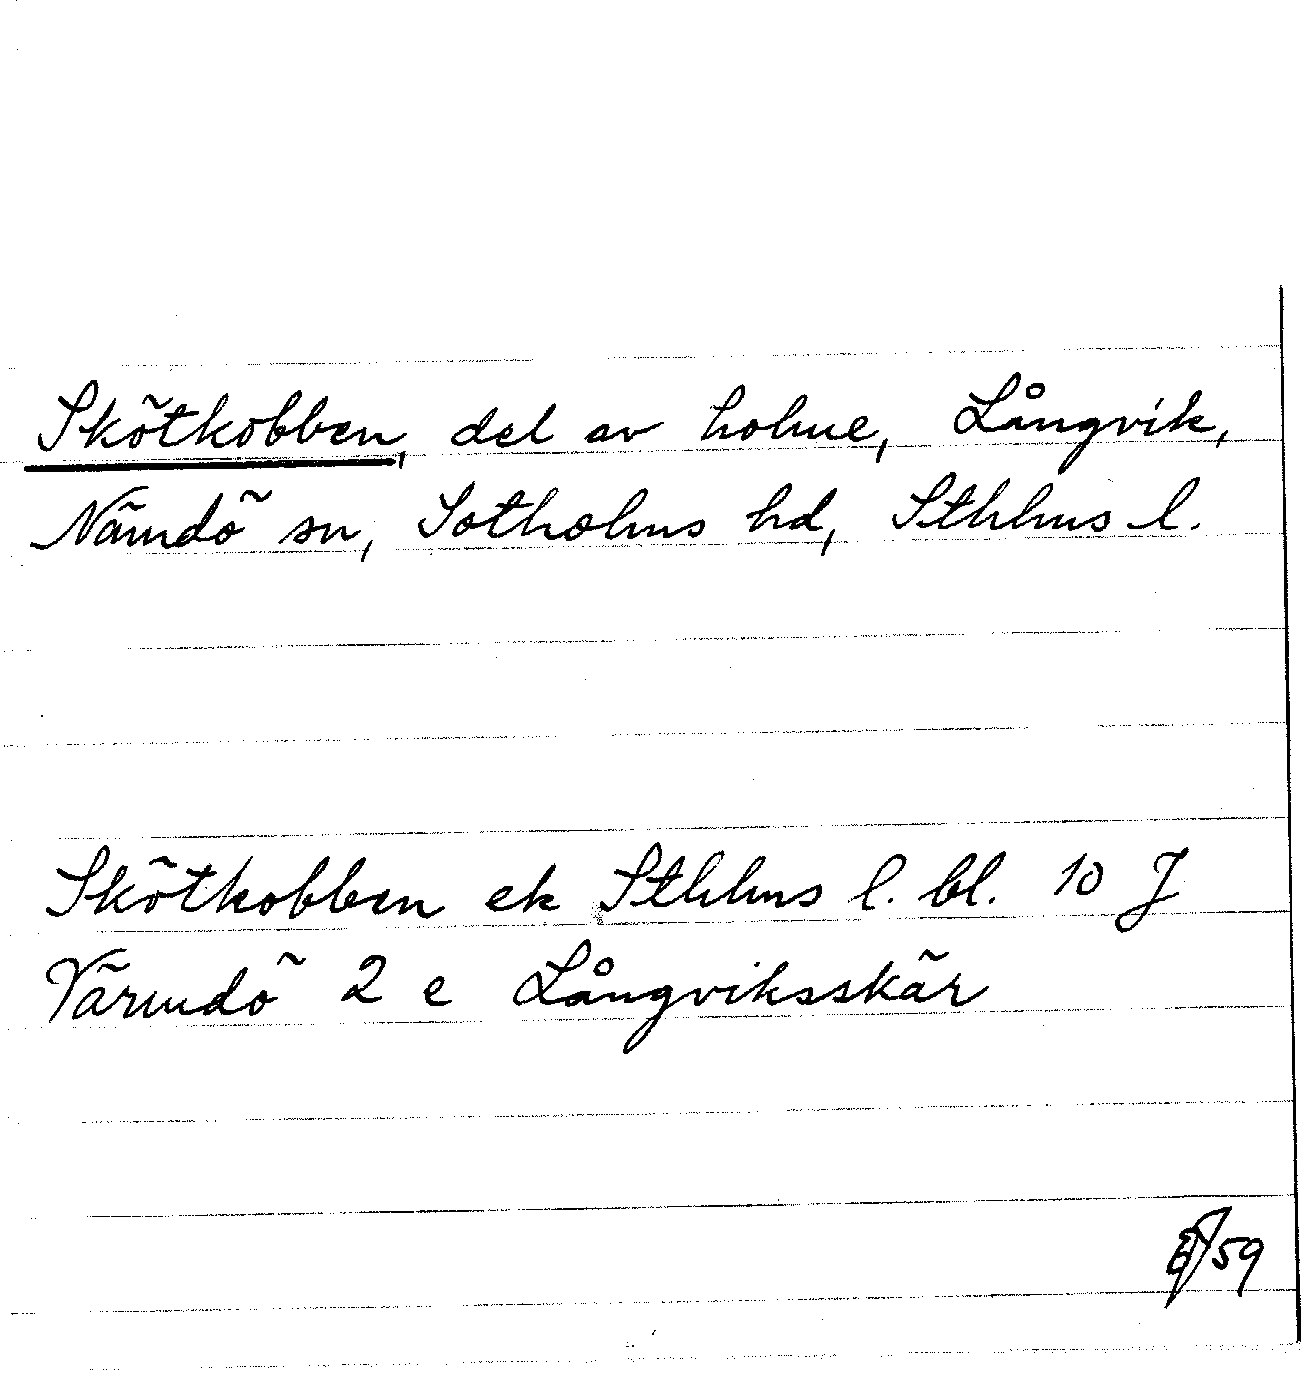 Skötkobben, del av holme, Långvik,
Nämdö sn, Sotholms hd, Sthlms l.
Skötkobben ek Sthlms l. bl. 10 J
Värmdö 2 e Långviksskär
59